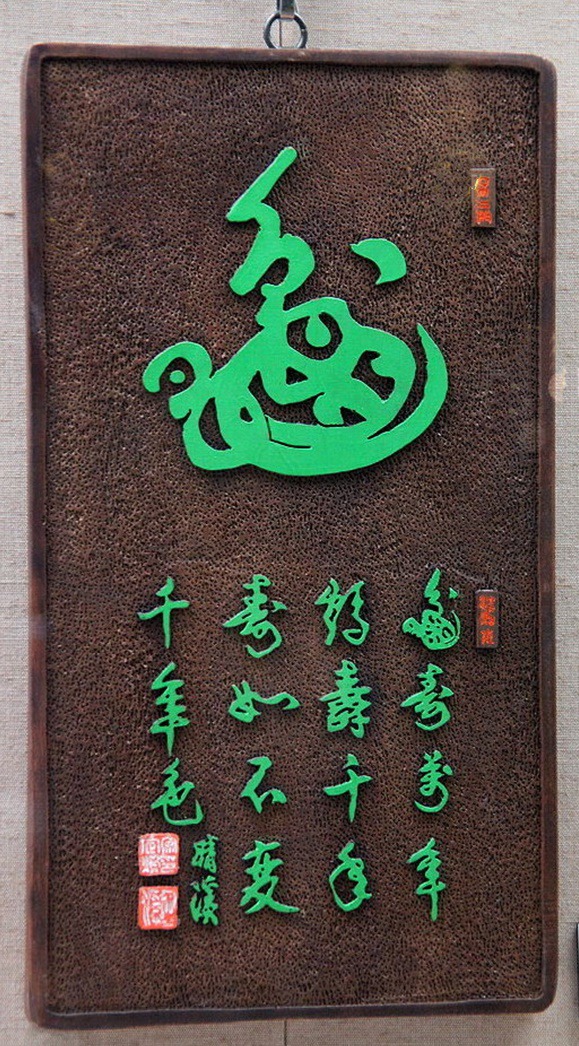 龜
龜壽萬年
鶴壽千年
壽如不變
千年色